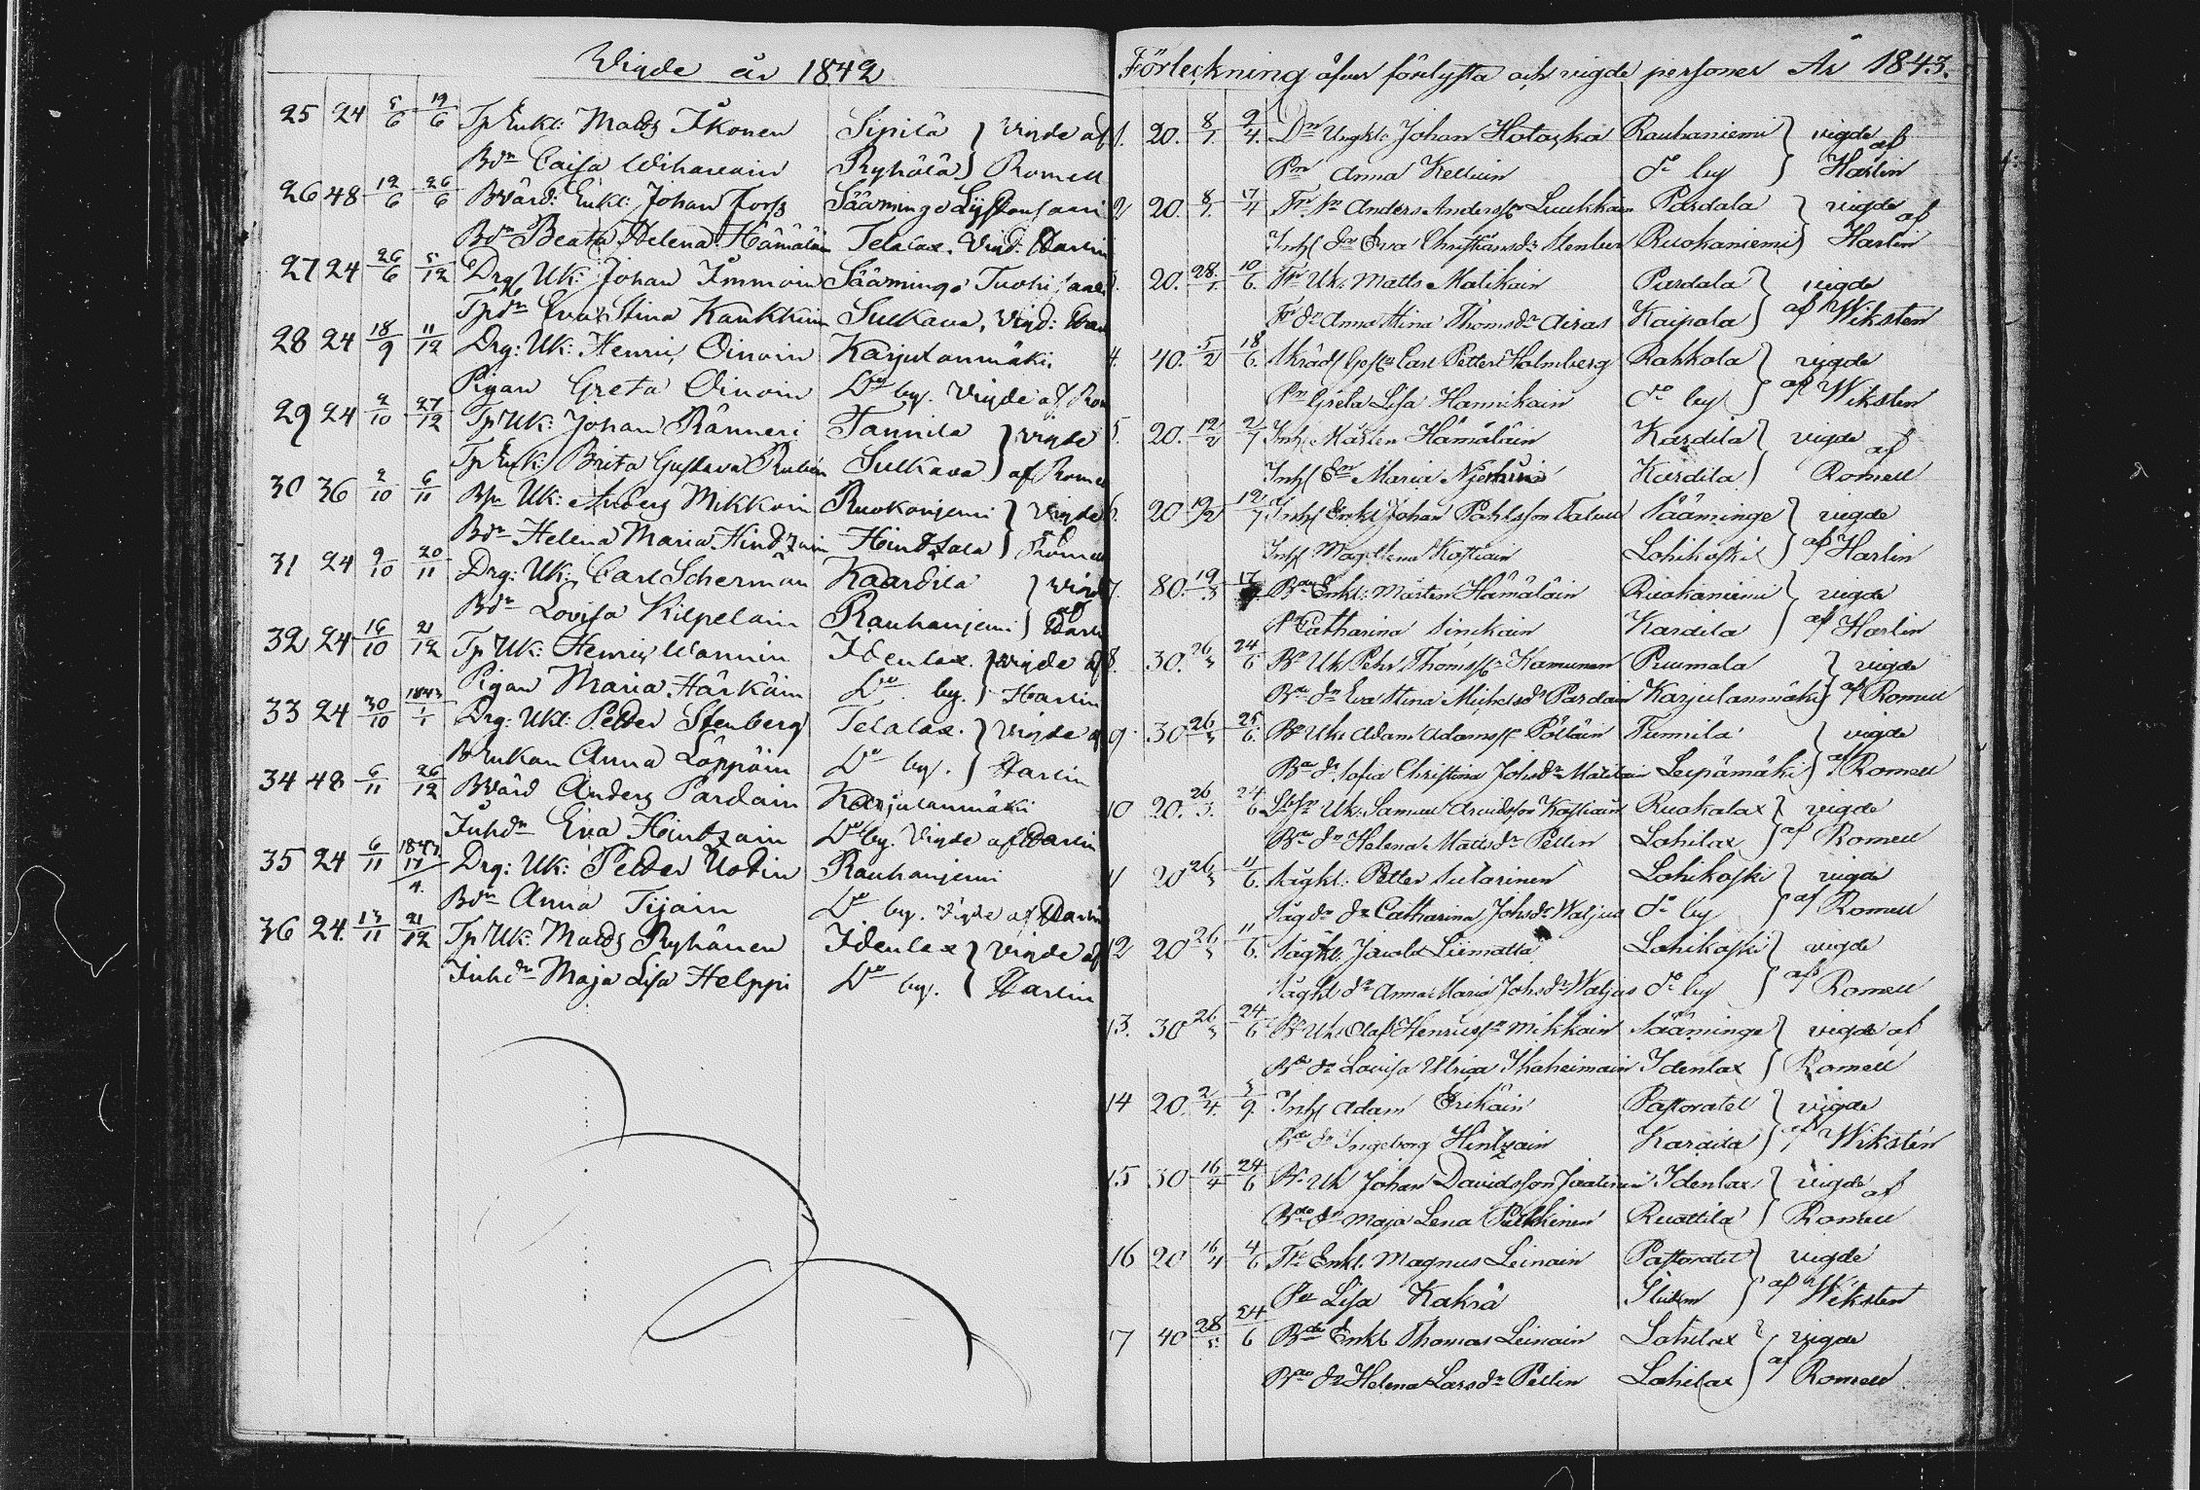 Vigde år 1842
25 24 5/6 19/6 Tp Enkl: Matts Ikonen Sipilä } Vigde af
Bdr Caisa Wiharain Ryhälä } Romell
26 48 12/6 26/6 Bvärd: Enkl: Johan Forss Sääminge
Bdr Beata Helena Hämäläin Telalax. Vigd: Harlin
27 24 26/6 5/12 Drg Uk: Johan Immoin Sääminge Tuohisaari
Eva Stina Kaukkuin Sulkava, Vigd:
28 24 18/9 11/12 Drg: Uk: Henric Oinoin Karjulanmäki
Pigan Greta Oinoin Do by. Vigde af
29 24 2/10 27/12 Tp Uk: Johan Ränneri Tannila } Vigde
Tp Enk: Brita Gustava Sulkava } af Romell
30 36 2/10 6/11 Uk: Anders Mikkoin Ruokonjemi } Vigde
Bdr Helena Maria Hindzain Heindzala } Romell
31 24 9/10 20/11 Drg: Uk: Carl Scherman Kaardila } Vigd
Bdr Lovisa Kilpelain Rauhanjemi } Harlin
32 24 16/10 21/12 Tp Uk: Henric Wannin Idenlax. } vigde af
Pigan Maria Härkäin Do by. } Harlin
33 24 30/10 1843 1/1 Drg: Ukl: Petter Stenberg Telalax. } Vigde af
B Enkan Anna Löppäin Do by. } Harlin
34 48 6/11 26/12 Bvärd Anders Pardain Karjulanmäki
Inhdr Eva Heindzain Do by. Vigde af Harlin
35 24 6/11 1843 17/4. Drg: Uk: Petter Uotin Rauhanjemi
Bdr Anna Tijain Do by. Vigde af Harlin
36 24. 13/11 21/12 Tp Uk: Matts Ryhänen Idenlax } vigde af
Inhdr Maja Lisa Helppi Do by. } Harlin
Förteckning öfver förelysta och vigde personer År 1843.
1. 20. 8/1. 9/4. Dr Ungkl. Johan Hotazka Rauhaniemi } vigde af
Pn Anna Kelluin do by } Harlin
2 20. 8/1. 17/4 Anders Anderss. Luukkain Pardala } vigde af
Inhs dr Eva Christiansdr Stenber Ruokaniemi } Harlin
3. 20. 28/1. 10/6. Uk. Matts Matikain Pardala } vigde
dr Anna Stina Thomsdr Airas Kaipala } af Wiksten
4. 40. 5/2 18/6. Skräd Ges. Carl Petter Holmberg Rahkola } vigde
Pn Greta Lisa Hannikain do by } af Wiksten
5. 20. 12/2 2/7 Inhs Mårten Hämäläin Kardila } vigde af
Inhs Maria Kardila } Romell
6. 20 19/2 12/7 Inhs Enkl Johan Pahlsson Sääminge } vigde
Inhs Magdlena Kostiain Lohikoski } af Harlin
7. 80. 19/3 17 Enkl: Mårten Hämäläin Ruokaniemi } vigde
P Catharina Sinikain Kardila } af Harlin
8. 30. 26/3 24/6 Bn Uk Pehr Thomss. Kamunen Puumala } vigde
dr Eva Stina Michelsdr Pardain Karjulanmäki } af Romell
9. 30 26/3 25/6. Uk. Adam Adamss. Pöllain Tunnila } vigde
dr Sofia Christina Johsdr Leipämäki } af Romell
10 20. 26/3. 24/6 Uk. Samuel Arvidsson Kostiain Ruokolax } vigde
dr Helena Mattsdr Pellin Lohilax } af Romell
11 20 26/3 11/6. Sågkl. Petter Sutarinen Lohikoski } vigde
Såg dr Catharina Johsdr Waljus do by } af Romell
12 20 26/3 11/6. Sågkl. Jacob Liimatta Lohikoski } vigde
Sågkl dr Anna Maria Johsdr Waljus do by } af Romell
13. 30 26/3 24/6 Uk. Olaf Henricss. Mikkain Sääminge } vigde af
dr Lovisa Ulrica Ikäheimain Idenlax } Romell
14 20. 2/4. 3/9. Inhs Adam Erikäin Pastoratet } vigde
dr Ingeborg Hintzain Kardila } af Wikstén
15 30 16/4 24/6 Uk Johan Davidsson Idenlax } vigde af
dr Maja Lena Pulkkinen Ruottila } Romell
16 20 16/4 4/6 Enkl. Magnus Leinain Pastoratet } vigde
Pn Lisa Kakrä } af Wiksten
17 40 28/5. 24/6 Enkl Thomas Leinain Lohilax } vigde
dr Helena Larsdr Pellin Lohilax } af Romell